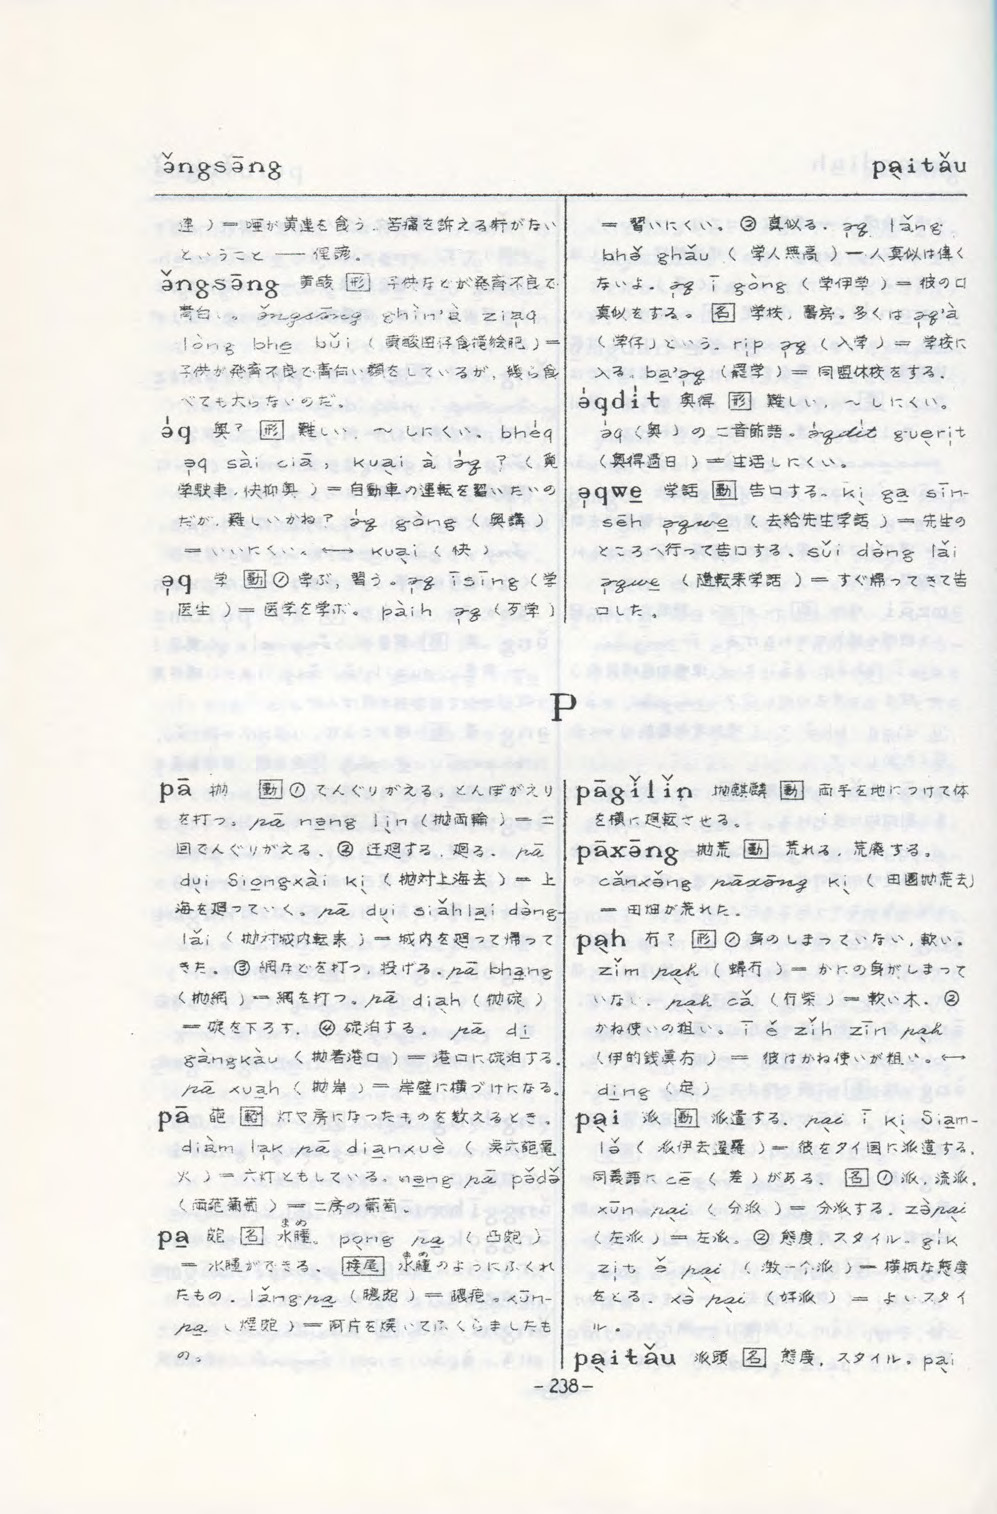 ə̌ngsāng
pa̱itǎu
連 ) ＝ 唖が黄連を食う. 苦痛を訴える所がない
ということ —— 俚諺。
ə̌ngsəng 黄酸 [形] 子供などが発育不良で
青白い。 ə̌ngsəng ghìn'à ziaq
lòng bhe bǔi
子供が発育不良で青白い顔をしているが, 幾ら食
べても太らないのだ。
ə̍q 奥? [形] 難しい, ～しにくい。 bhéq
əq sài ciā, kuai à ə̍q ? ( 奥
学駛車,快抑奥 ) ＝ 自動車の運転を習いたいの
だが, 難しいかね? ə̍q gòng ( 奥講 )
＝ いいにくい。 ←→ kuai ( 快 )
əq 学 [動] ① 学ぶ, 習う。 əq īsīng (学
医生 ) ＝ 医学を学ぶ。 pàih əq ( 歹学 )
＝ 習いにくい。 ② 真似る. əq lǎng
bhə̌ ghǎu ( 学人無高 ) ＝ 人真似は偉く
ないよ. əq ī gòng ( 学伊学 ) ＝ 彼の口
真似をする。 [名] 学校, 書房. 多くは əq'à
( 学仔 ) という. rip əq ( 入学 ) ＝ 学校に
入る. ba'əq (罷学 ) ＝ 同盟休校をする.
ə̍qdit 奥得 [形] 難しい, ～しにくい。
ə̍q (奥 ) の二音節語。 ə̍qdit guerit
(奥得過日 ) ＝ 生活しにくい。
əqwe 学話 [動] 告口する. ki ga sīn-
sēh əqwe ( 去給先生学話 ) ＝ 先生の
ところへ行って告口する. sǔi dàng lǎi
əqwe ( 随転来学話 ) ＝ すぐ帰ってきて告
口した.
P
pā 抛 [動] ① てんぐりがえる, とんぼがえり
を打つ。 pā nəng lìn (抛両輪 ) ＝ 二
回でんぐりがえる. ② 迂廻する. 廻る. pā
dui Siongxài ki ( 抛対上海去 ) ＝ 上
海を廻っていく。 pā dui siǎhlai dàng
lǎi ( 抛対城内転来 ) ＝ 城内を廻って帰って
きた。 ③ 網などを打つ, 投げる. pā bhang
(抛網 ) ＝ 網を打つ。 pā diah (抛碇 )
＝ 碇を下ろす. ④ 碇泊する. pā di
gàngkàu ( 抛着港口 ) ＝ 港口に碇泊する.
pā xuah ( 抛岸 ) ＝ 岸壁に横づけになる.
pā 葩 灯や房になったものを数えるとき.
diàm lak pā dianxuè
火 ) ＝ 六灯ともしている. nəng pā pǒdǒ
(両葩葡萄 ) ＝ 二房の葡萄.
pa 皰 [名] 水腫。 pòng pa ( 凸皰 )
まめ
＝ 水腫ができる. [接尾] 水腫のようにふくれ
まめ
たもの. lǎngpa
pa. ( 煙皰 ) ＝ 阿片を焼いてふくらましたも
の。
pāgǐlǐn 抛麒麟 [動] 両手を地につけて体
を横に廻転させる。
pāxəng 抛荒 [動] 荒れる, 荒廃する。
cǎnxə̌ng pāxəng ki ( 田園抛荒去)
＝ 田畑が荒れた.
pah 冇? [形] ① 身のしまっていない, 軟い.
zǐm pah ( 蟳冇 ) ＝ かにの身がしまって
いない. pah cǎ (冇柴 ) ＝ 軟い木. ②
かね使いの粗い。 ī ě zǐh zīn pah
(伊的銭真冇 ) ＝ 彼はかね使いが粗い。 ←→
ding (定 )
pai 派 [動] 派遣する. pai ī ki Siam-
lə̌ ( 派伊去暹羅 ) ＝ 彼をタイ国に派遣する.
同義語に cē ( 差 ) がある. [名] ① 派, 流派.
xūn pai ( 分派 ) ＝ 分派する. zə̀pai
( 左派 ) ＝ 左派。 ② 態度, スタイル.
zit ě pai ( 激一个派 ) ＝ 横柄な態度
をとる. xə̀ pai (好派 ) ＝ よいスタイ
ル.
paitǎu 派頭 [名] 態度, スタイル. pai
- 238 -